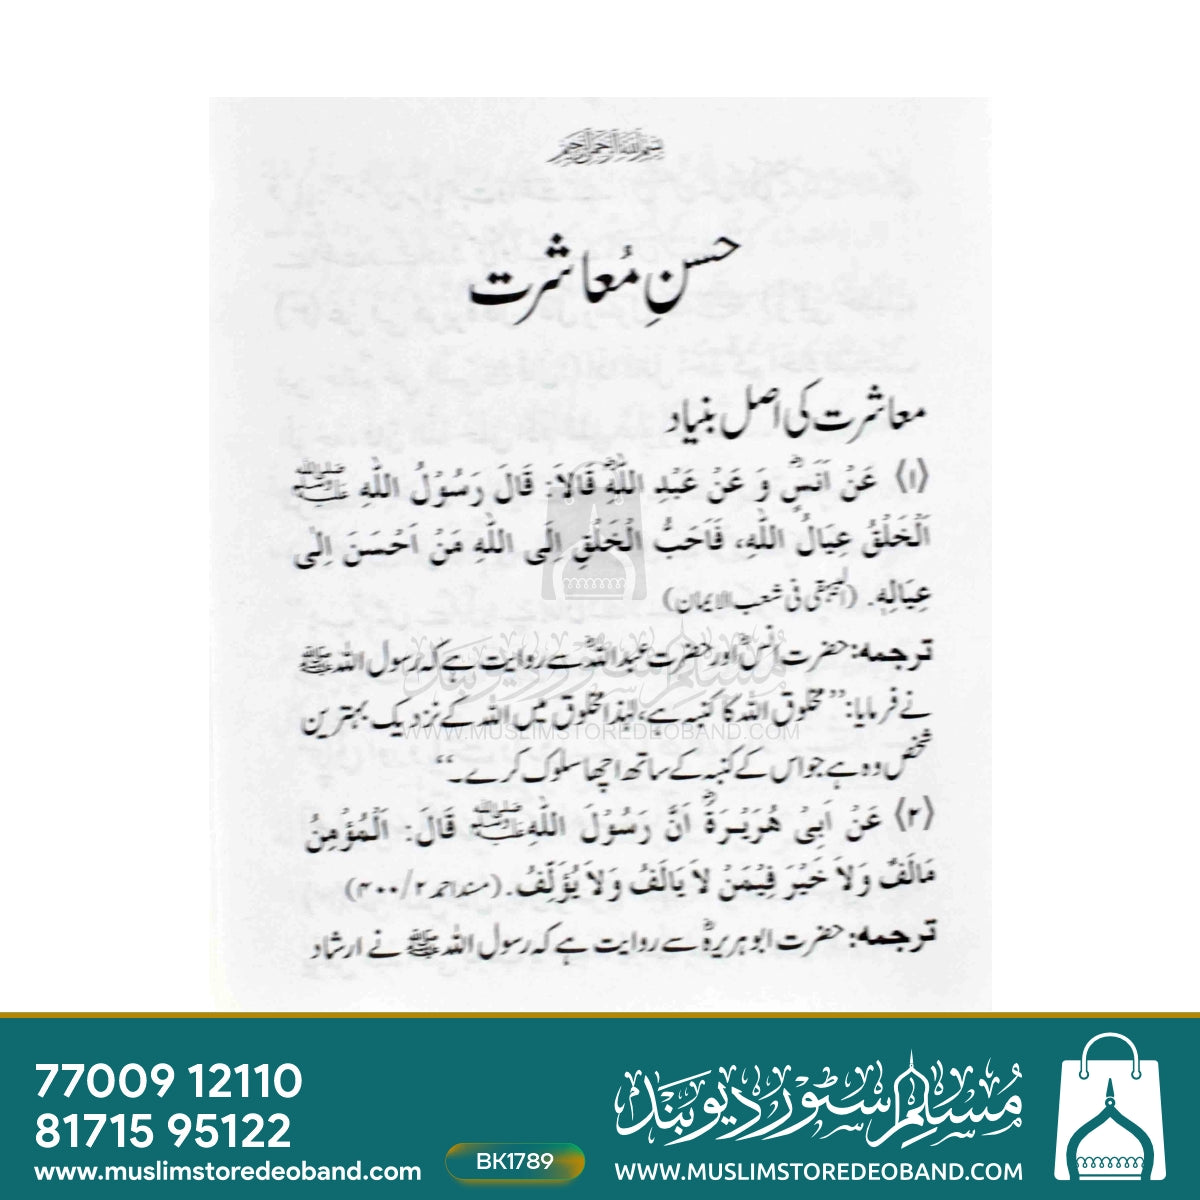 بسم الله الرحمن الرحيم
حسنِ مُعاشرت
معاشرت کی اصل بنیاد
⟨۱⟩ عَنْ اَنَسٍؓ وَ عَنْ عَبْدِ اللّٰهِؓ قَالَا: قَالَ رَسُوْلُ اللّٰهِ ﷺ
اَلْخَلْقُ عِيَالُ اللّٰهِ، فَاَحَبُّ الْخَلْقِ اِلَى اللّٰهِ مَنْ اَحْسَنَ اِلٰى
عِيَالِهٖ. (البیہقی فی شعب الایمان)
ترجمہ: حضرت انسؓ اور حضرت عبداللہؓ سے روایت ہے کہ رسول اللہ ﷺ
نے فرمایا: ”مخلوق اللہ کا کنبہ ہے، لہٰذا مخلوق میں اللہ کے نزدیک بہترین
شخص وہ ہے جو اس کے کنبہ کے ساتھ اچھا سلوک کرے۔“
⟨۲⟩ عَنْ اَبِىْ هُرَيْرَةَؓ اَنَّ رَسُوْلَ اللّٰهِ ﷺ قَالَ: اَلْمُؤْمِنُ
مَالَفٌ وَلَا خَيْرَ فِيْمَنْ لَا يَالَفُ وَلَا يُؤَلَّفُ. (مسند احمد ۲/۴۰۰)
ترجمہ: حضرت ابوہریرہؓ سے روایت ہے کہ رسول اللہ ﷺ نے ارشاد
مسلم سٹور دیوبند
WWW.MUSLIMSTOREDEOBAND.COM
77009 12110
81715 95122
www.muslimstoredeoband.com
BK1789
مُسلم سٹور دیوبند
WWW.MUSLIMSTOREDEOBAND.COM